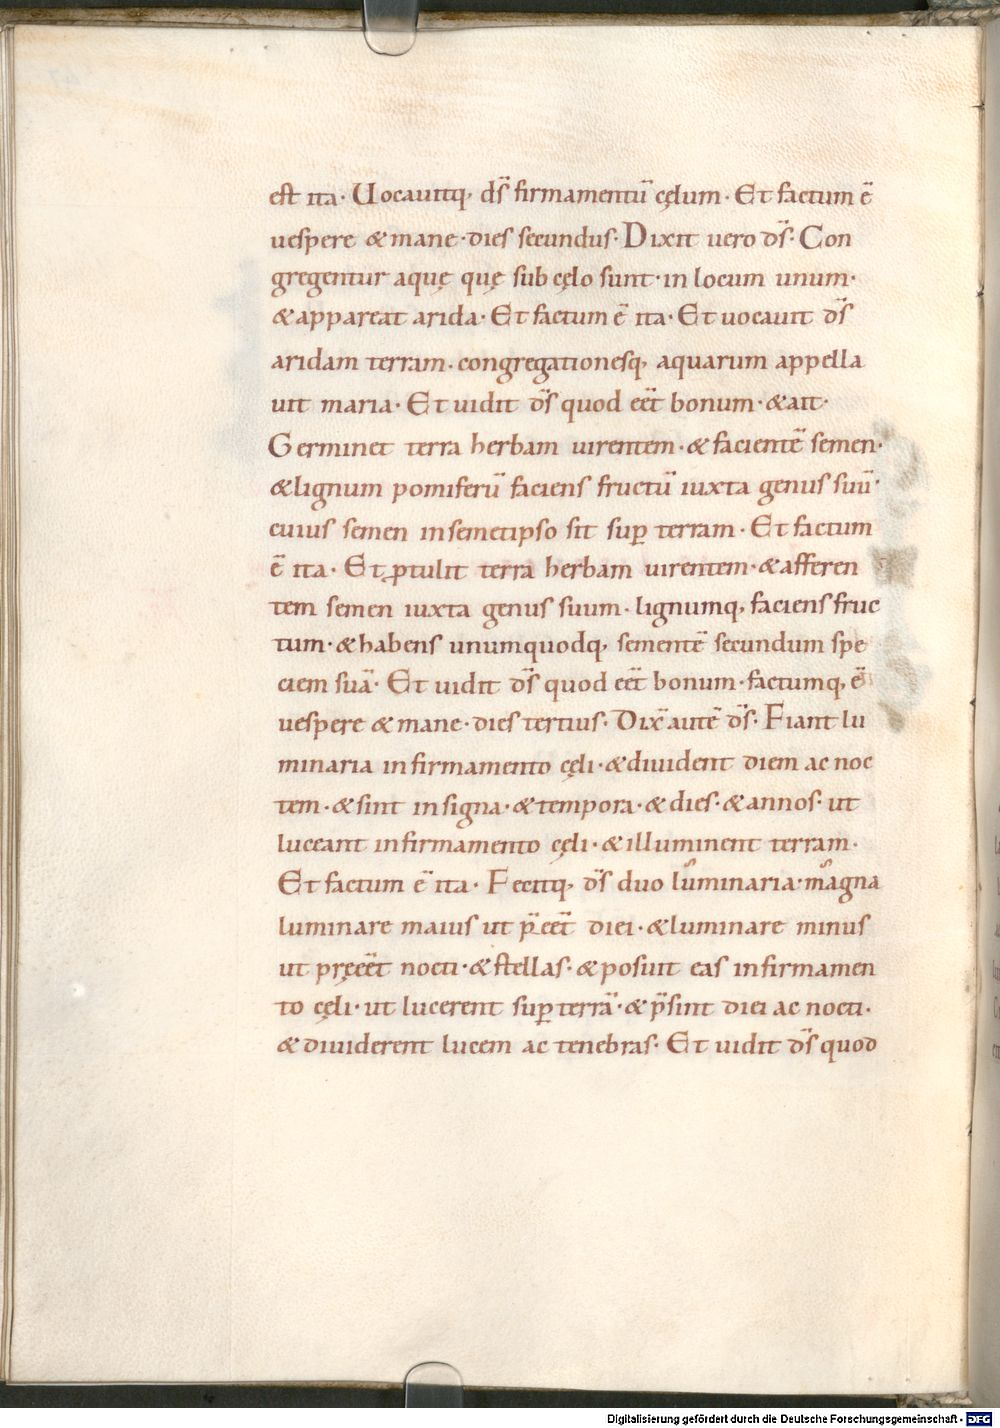 est ita· Uocauitq, ds̄ firmamentū cęlum· Et factum ē
uespere & mane· dies secundus· Dixit uero ds̄· Con
gregentur aquę quę sub cęlo sunt· in locum unum·
& appareat arida· Et factum ē ita· Et uocauit ds̄
aridam terram· congregationesq, aquarum appella
uit maria· Et uidit ds̄ quod eēt bonum· & ait·
Germinet terra herbam uirentem· & facientē semen·
& lignum pomiferū faciens fructū iuxta genus suū·
cuius semen in semetipso sit sup̱ terram· Et factum
ē ita· Et ꝓtulit terra herbam uirentem· & afferen
tem semen iuxta genus suum· lignumq, faciens fruc
tum· & habens unumquodq, sementē secundum spe
ciem suā· Et uidit ds̄ quod eēt bonum· factumq, ē
uespere & mane· dies tertius· Dix̄ autē ds̄· Fiant lu
minaria in firmamento cęli· & diuident diem ac noc
tem· & sint in signa· & tempora· & dies· & annos· ut
luceant in firmamento cęli· & illuminent terram·
Et factum ē ita· Fecitq, ds̄ duo luminaria· magna
luminare maius ut p̄eēt diei· & luminare minus
ut pręeēt nocti· & stellas· & posuit eas in firmamen
to cęli· ut lucerent sup̱ terrā· & p̄sint diei ac nocti·
& diuiderent lucem ac tenebras· Et uidit ds̄ quod
Digitalisierung gefördert durch die Deutsche Forschungsgemeinschaft - DFG